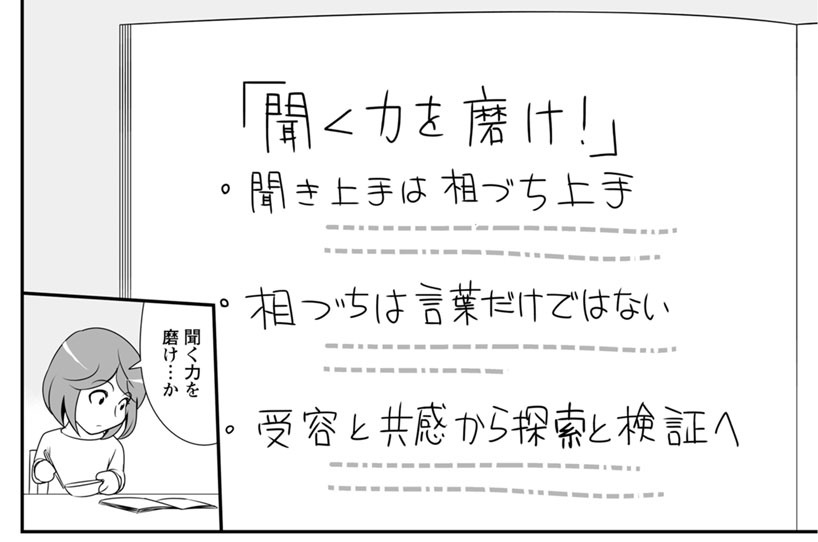 「聞く力を磨け！」
。聞き上手は相づち上手
。相づちは言葉だけではない
。受容と共感から探索と検証へ
聞く力を
磨け…か